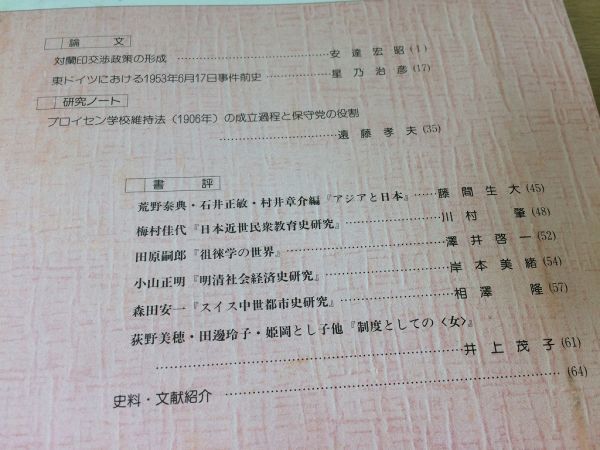 論文
対蘭印交渉政策の形成……………………安達宏昭(1)
東ドイツにおける1953年6月17日事件前史……………星乃治彦(17)
研究ノート
プロイセン学校維持法（1906年）の成立過程と保守党の役割
……………………遠藤孝夫(35)
書評
荒野泰典・石井正敏・村井章介編『アジアと日本』……藤間生大(45)
梅村佳代『日本近世民衆教育史研究』……………川村肇(48)
田原嗣郎『徂徠学の世界』……………………澤井啓一(52)
小山正明『明清社会経済史研究』……………………岸本美緒(54)
森田安一『スイス中世都市史研究』……………………相澤隆(57)
荻野美穂・田邊玲子・姫岡とし子他『制度としての〈女〉』
……………………………………井上茂子(61)
史料・文献紹介……………………………………(64)